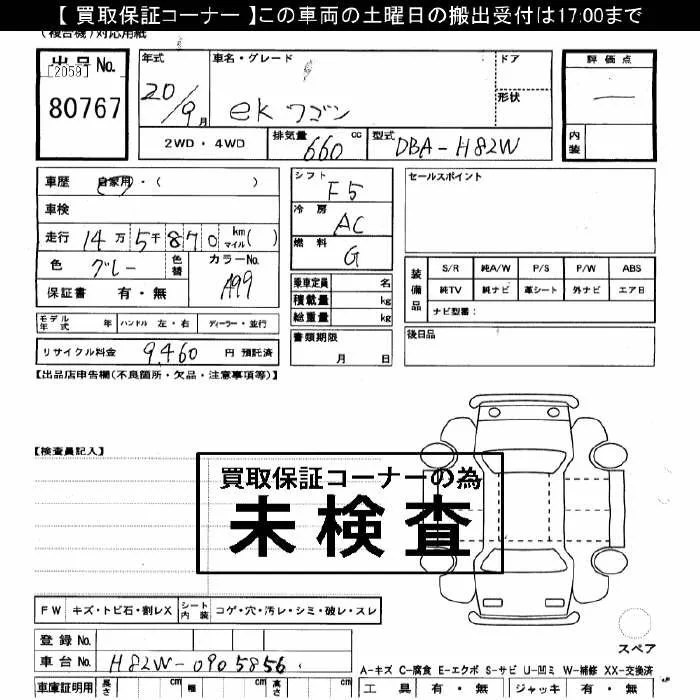 【 買取保証コーナー 】この車両の土曜日の搬出受付は17:00まで
(複合機)対応用紙
出品No.
[2059]
80767
年式
20/9月
車名・グレード
ek ワゴン
ドア
形状
評価点
—
内装
2WD・4WD
排気量 660 cc
型式 DBA-H82W
車歴 自家用・( )
車検
走行 14万5千870 km マイル( )
色 グレー
色替
カラーNo.
A99
保証書 有・無
シフト F5
冷房 AC
燃料 G
セールスポイント
乗車定員 名
積載量 kg
総重量 kg
装備品
S/R 純A/W P/S P/W ABS
純TV 純ナビ 革シート 外ナビ エアB
ナビ型番:
モデル年式 年 ハンドル 左・右 ディーラー・並行
書類期限
月 日
後日品
リサイクル料金 9,460 円 預託済
【出品店申告欄(不良箇所・欠品・注意事項等)】
【検査員記入】
買取保証コーナーの為
未検査
FW キズ・トビ石・割レX シート内装 コゲ・穴・汚レ・シミ・破レ・スレ
スペア
登録No.
車台No. H82W-0905856
A-キズ C-腐食 E-エクボ S-サビ U-凹ミ W-補修 XX-交換済
車庫証明用 長さ cm 幅 cm 高さ cm
工具 有・無 ジャッキ 有・無